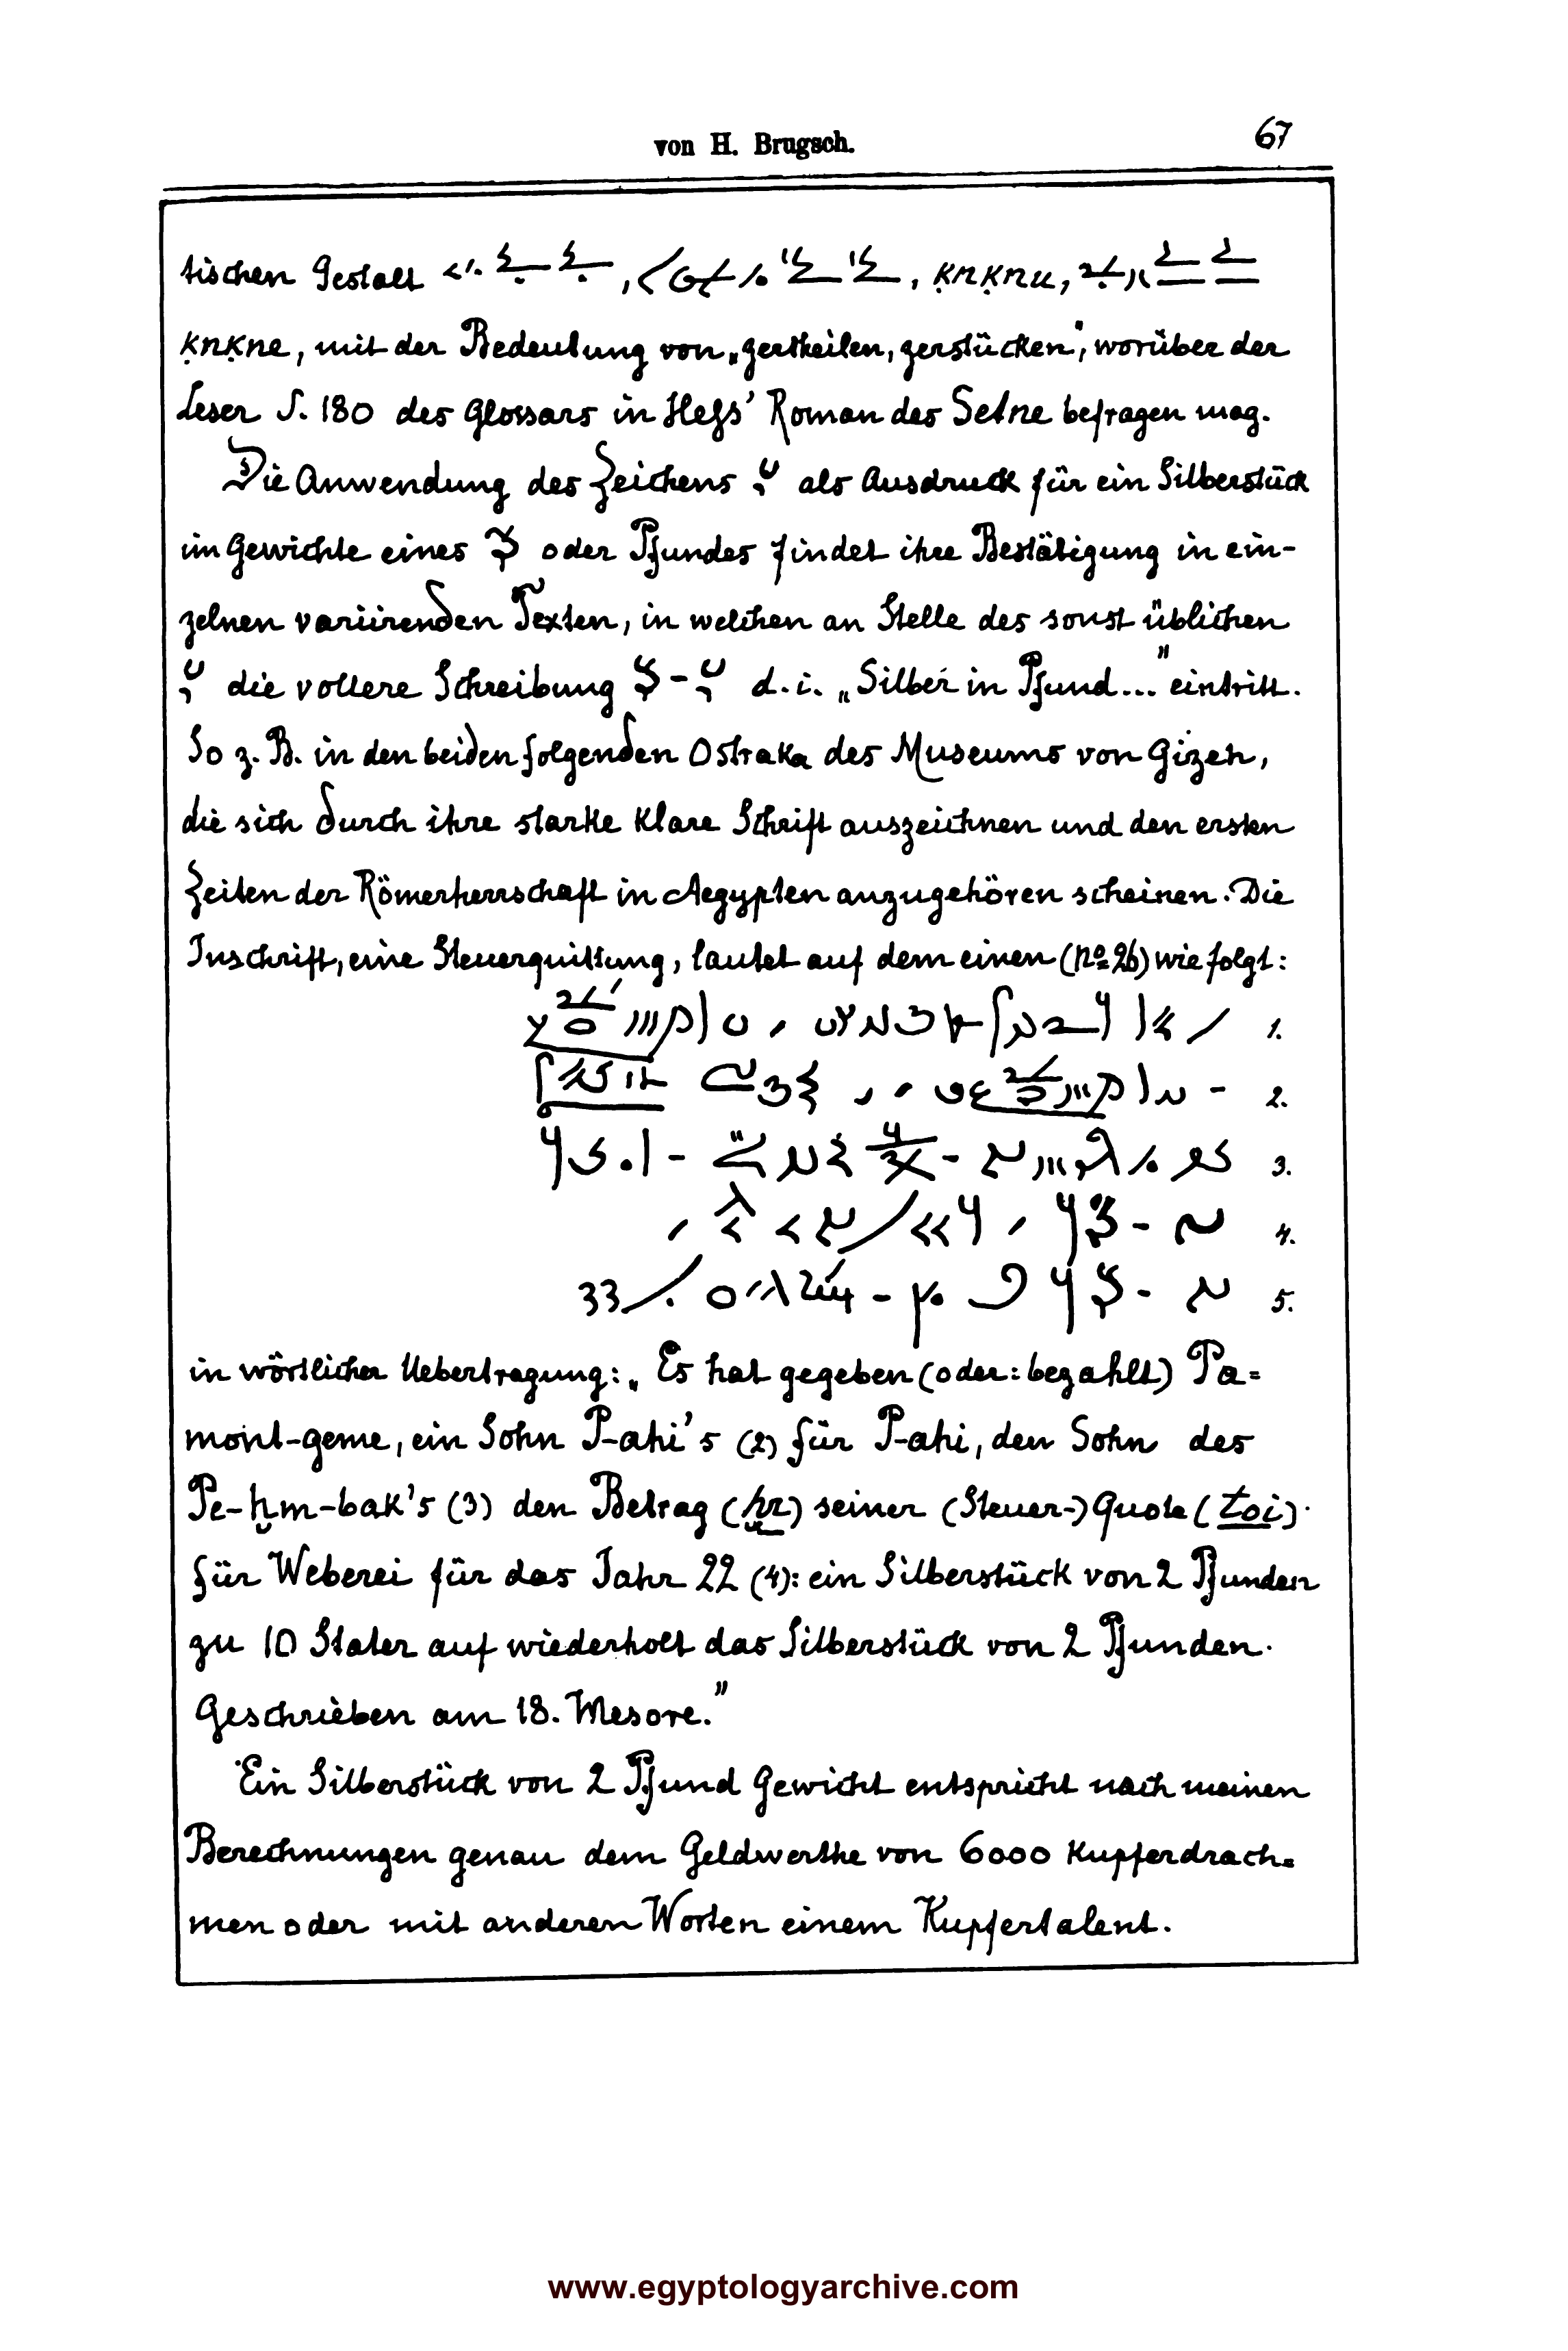 von H. Brugsch.
67
tischen Gestalt , , ḳnḳnu,
ḳnḳne, mit der Bedeutung von „zertheilen, zerstücken", worüber der
Leser S. 180 des Glossars in Hefs' Roman des Setne befragen mag.
Die Anwendung des Zeichens als Ausdruck für ein Silberstück
im Gewichte eines oder Pfundes findet ihre Bestätigung in ein-
zelnen variirenden Texten, in welchen an Stelle des sonst üblichen
die vollere Schreibung d. i. „Silber in Pfund..." eintritt.
So z. B. in den beiden folgenden Ostraka des Museums von Gizeh,
die sich durch ihre starke klare Schrift auszeichnen und den ersten
Zeiten der Römerherrschaft in Aegypten anzugehören scheinen. Die
Inschrift, eine Steuerquittung, lautet auf dem einen (no 26) wie folgt:
1.
2.
3.
4.
5.
in wörtlicher Uebertragung: „Es hat gegeben (oder: bezahlt) Pa-
mont-zeme, ein Sohn P-ahi's (2) für P-ahi, den Sohn des
Pe-ḫm-bak's (3) den Betrag (ḥr) seiner (Steuer-) Quote (toi)
für Weberei für das Jahr 22 (4): ein Silberstück von 2 Pfunden
zu 10 Stater auf wiederholt das Silberstück von 2 Pfunden.
Geschrieben am 18. Mesore."
Ein Silberstück von 2 Pfund Gewicht entspricht nach meinen
Berechnungen genau dem Geldwerthe von 6000 Kupferdrach-
men oder mit anderen Worten einem Kupfertalent.
www.egyptologyarchive.com